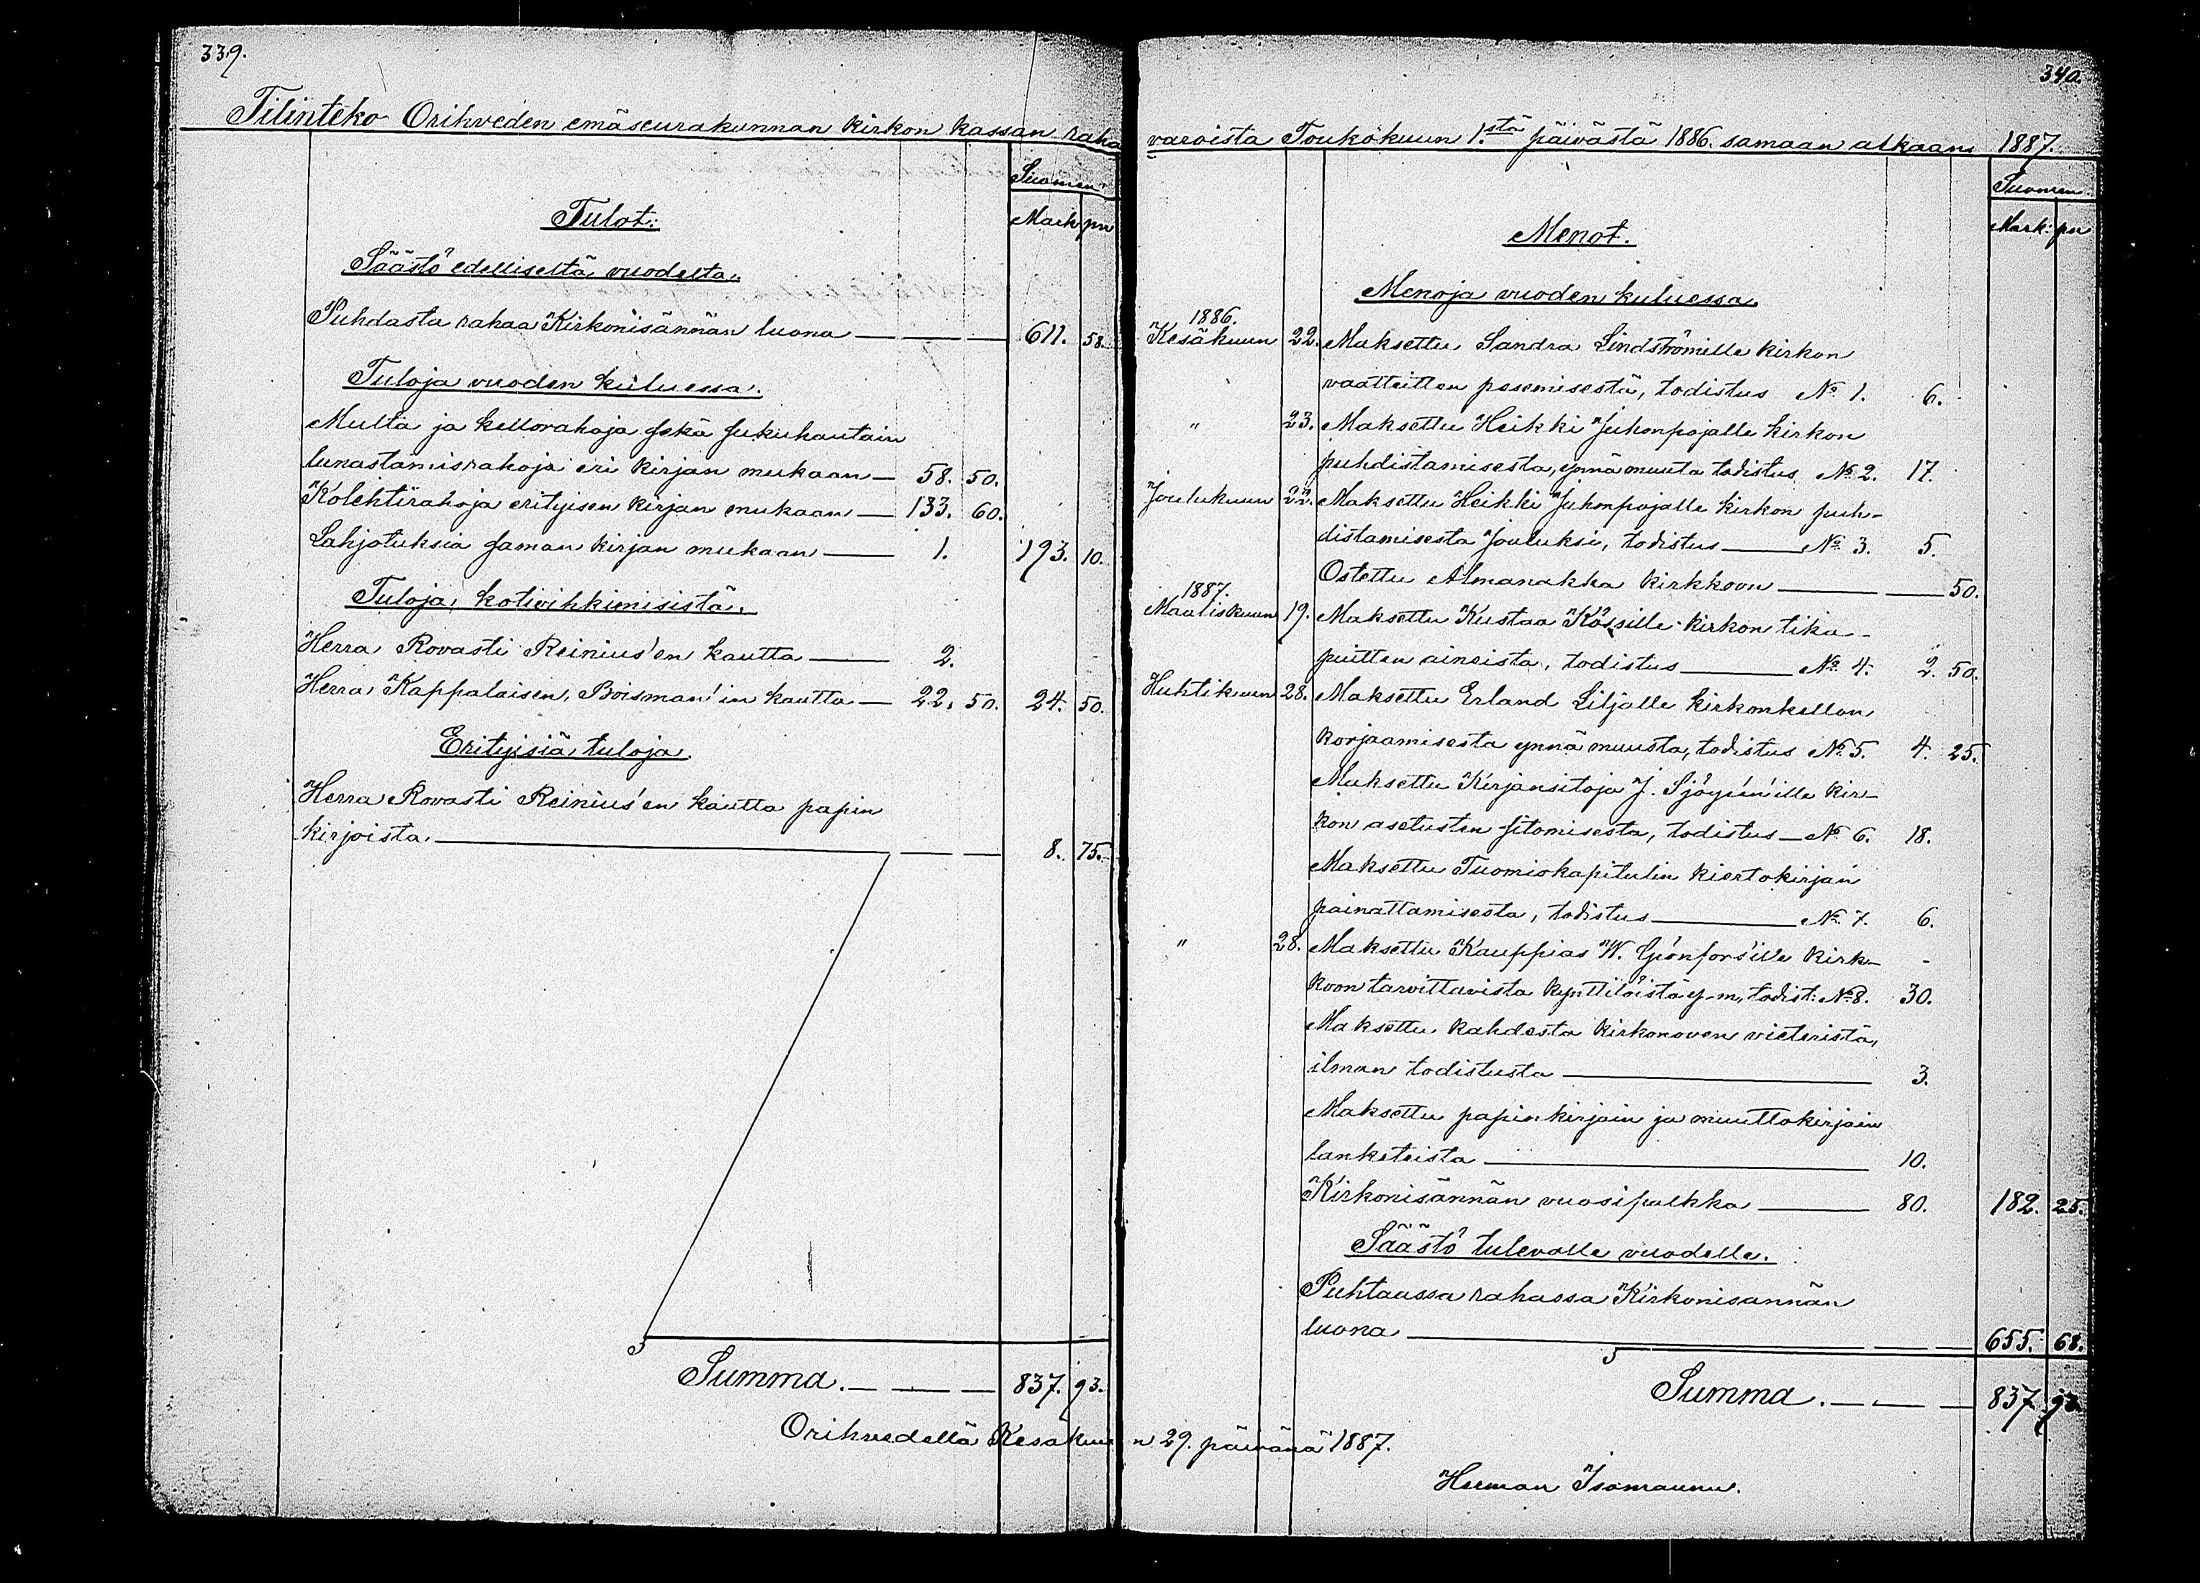 339.
Tilinteko Orihveden emäseurakunnan kirkon kassan raha
Suomen
Mark pn
Tulot:
Säästö edelliseltä vuodelta.
Puhdasta rahaa Kirkonisännän luona — 611. 58.
Tuloja vuoden kuluessa.
Multa ja kellorahoja sekä sukuhautain
lunastamisrahoja eri kirjan mukaan — 58. 50.
Kolehtirahoja erityisen kirjan mukaan — 133. 60.
Lahjotuksia saman kirjan mukaan — 1. 193. 10.
Tuloja kotivihkimisistä.
Herra Rovasti Reinius'en kautta — 2.
Herra Kappalaisen, Boisman'in kautta — 22. 50. 24. 50.
Erityisiä tuloja.
Herra Rovasti Reinius'en kautta papin
kirjoista. — 8. 75.
Summa. — 837. 93.
340.
varoista Toukokuun 1.stä päivästä 1886. samaan aikaan 1887.
Suomen
Mark: pn
Menot.
Menoja vuoden kuluessa.
1886.
Kesäkuun 22. Maksettu Sandra Lindströmille kirkon
vaatteitten pesemisestä, todistus No 1. 6.
" 23. Maksettu Heikki Juhonpojalle kirkon
puhdistamisesta, ynnä muuta todistus No 2. 17.
Joulukuun 22. Maksettu Heikki Juhonpojalle kirkon puh-
distamisesta Jouluksi, todistus — No 3. 5.
Ostettu Almanakka kirkkoon — 50.
1887.
Maaliskuun 19. Maksettu Kustaa Kössille kirkon tika-
puitten aineista, todistus — No 4. 2. 50.
Huhtikuun 28. Maksettu Erland Liljalle kirkonkellon
korjaamisesta ynnä muusta, todistus No 5. 4. 25.
Maksettu Kirjansitoja J. Sjögren'ille kir-
kon asetusten sitomisesta, todistus — No 6. 18.
Maksettu Tuomiokapitulin kiertokirjan
painattamisesta, todistus — No 7. 6.
" 28. Maksettu Kauppias W. Grönfors'ille kirk-
koon tarvittavista kynttilöistä y-m, todist: No 8. 30.
Maksettu kahdesta kirkonoven vieteristä,
ilman todistusta — 3.
Maksettu papinkirjain ja muuttokirjain
lanketeista — 10.
Kirkonisännän vuosipalkka — 80. 182. 25.
Säästö tulevalle vuodelle.
Puhtaassa rahassa Kirkonisännän
luona — 655. 68.
Summa. — 837. 93.
Orihvedellä Kesäkuun 29. päivänä 1887.
Herman Isomaunu.